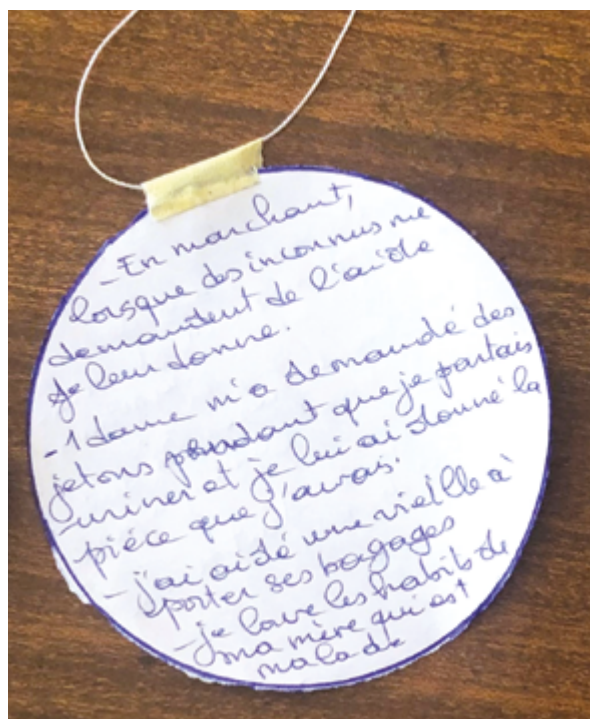 - En marchant,
lorsque des inconnus me
demandent de l'aide
je leur donne.
- 1 dame m'a demandé des
jetons pendant que je partais
uriner et je lui ai donné la
pièce que j'avais.
- j'ai aidé une vieille à
porter ses bagages
- je lave les habits de
ma mère qui est
malade